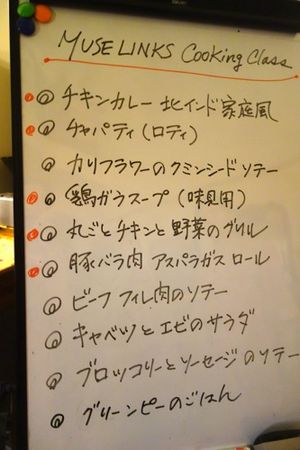 MUSE LINKS Cooking Class
◎ チキンカレー 北インド家庭風
◎ チャパティ(ロティ)
◎ カリフラワーのクミンシードソテー
◎ 鶏ガラスープ(味見用)
◎ 丸ごとチキンと野菜のグリル
◎ 豚バラ肉 アスパラガス ロール
◎ ビーフ フィレ肉のソテー
◎ キャベツとエビのサラダ
◎ ブロッコリーとソーセージのソテー
◎ グリーンピーのごはん